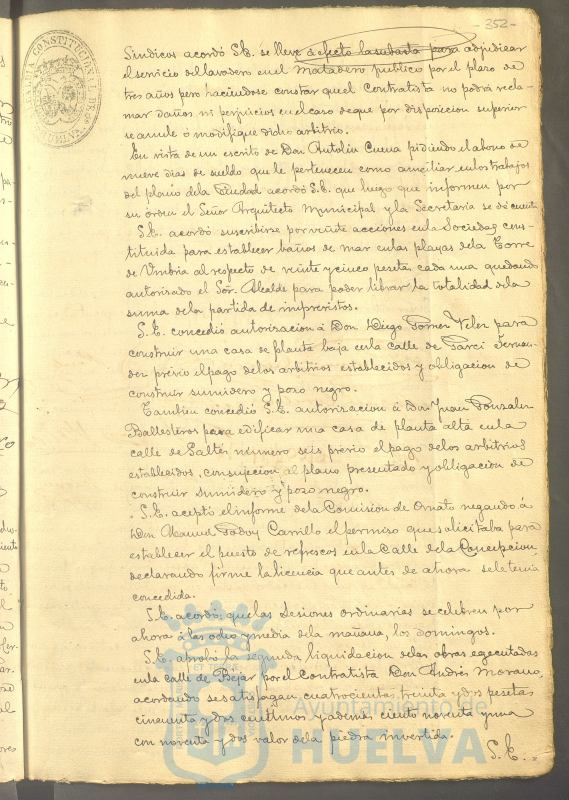 -352-
Sindicos acordó S.E. se lleve á efecto la subasta para adjudicar
el servicio del lavadero en el Matadero público por el plazo de
tres años pero haciendose constar que el Contratista no podrá recla-
mar daños ni perjuicios en el caso de que por disposicion superior
se anule ó modifique dicho arbitrio.
En vista de un escrito de Don Antolin Cueva pidiendo el abono de
nueve dias de sueldo que le pertenecen como auxiliar en los trabajos
del plano de la Ciudad acordó S.E. que luego que informen por
su orden el Señor Arquitecto Municipal y la Secretaria se dé cuenta
S.E. acordó suscribirse por veinte acciones en la Sociedad cons-
tituida para establecer baños de mar en las playas de la Torre
de Umbria al respecto de veinte y cinco pesetas cada una quedando
autorizado el Sor. Alcalde para poder librar la totalidad de la
suma de la partida de imprevistos.
S.E. concedió autorizacion á Don Diego Gomez Velez para
construir una casa de planta baja en la calle de Garci Fernan-
dez previo el pago de los arbitrios establecidos y obligacion de
construir sumidero y pozo negro.
Tambien concedió S.E. autorizacion á Don Juan Gonzalez
Ballesteros para edificar una casa de planta alta en la
calle de Saltés número seis previo el pago de los arbitrios
establecidos, con sujecion al plano presentado y obligacion de
construir sumidero y pozo negro.
S.E. aceptó el informe de la Comision de Ornato negando á
Don Manuel Godoy Carrillo el permiso que solicitaba para
establecer el puesto de refrescos en la Calle de la Concepcion,
declarando firme la licencia que antes de ahora se le tenia
concedida.
S.E. acordó, que las Sesiones ordinarias se celebren por
ahora á las ocho y media de la mañana, los domingos.
S.E. aprobó la segunda liquidacion de las obras egecutadas
en la calle de Béjar por el Contratista Don Andrés Morano,
acordando se satisfagan cuatrocientas treinta y dos pesetas
cincuenta y dos centimos y ademas ciento noventa y una
con noventa y dos valor de la piedra invertida.
S.E.
Ayuntamiento de
HUELVA